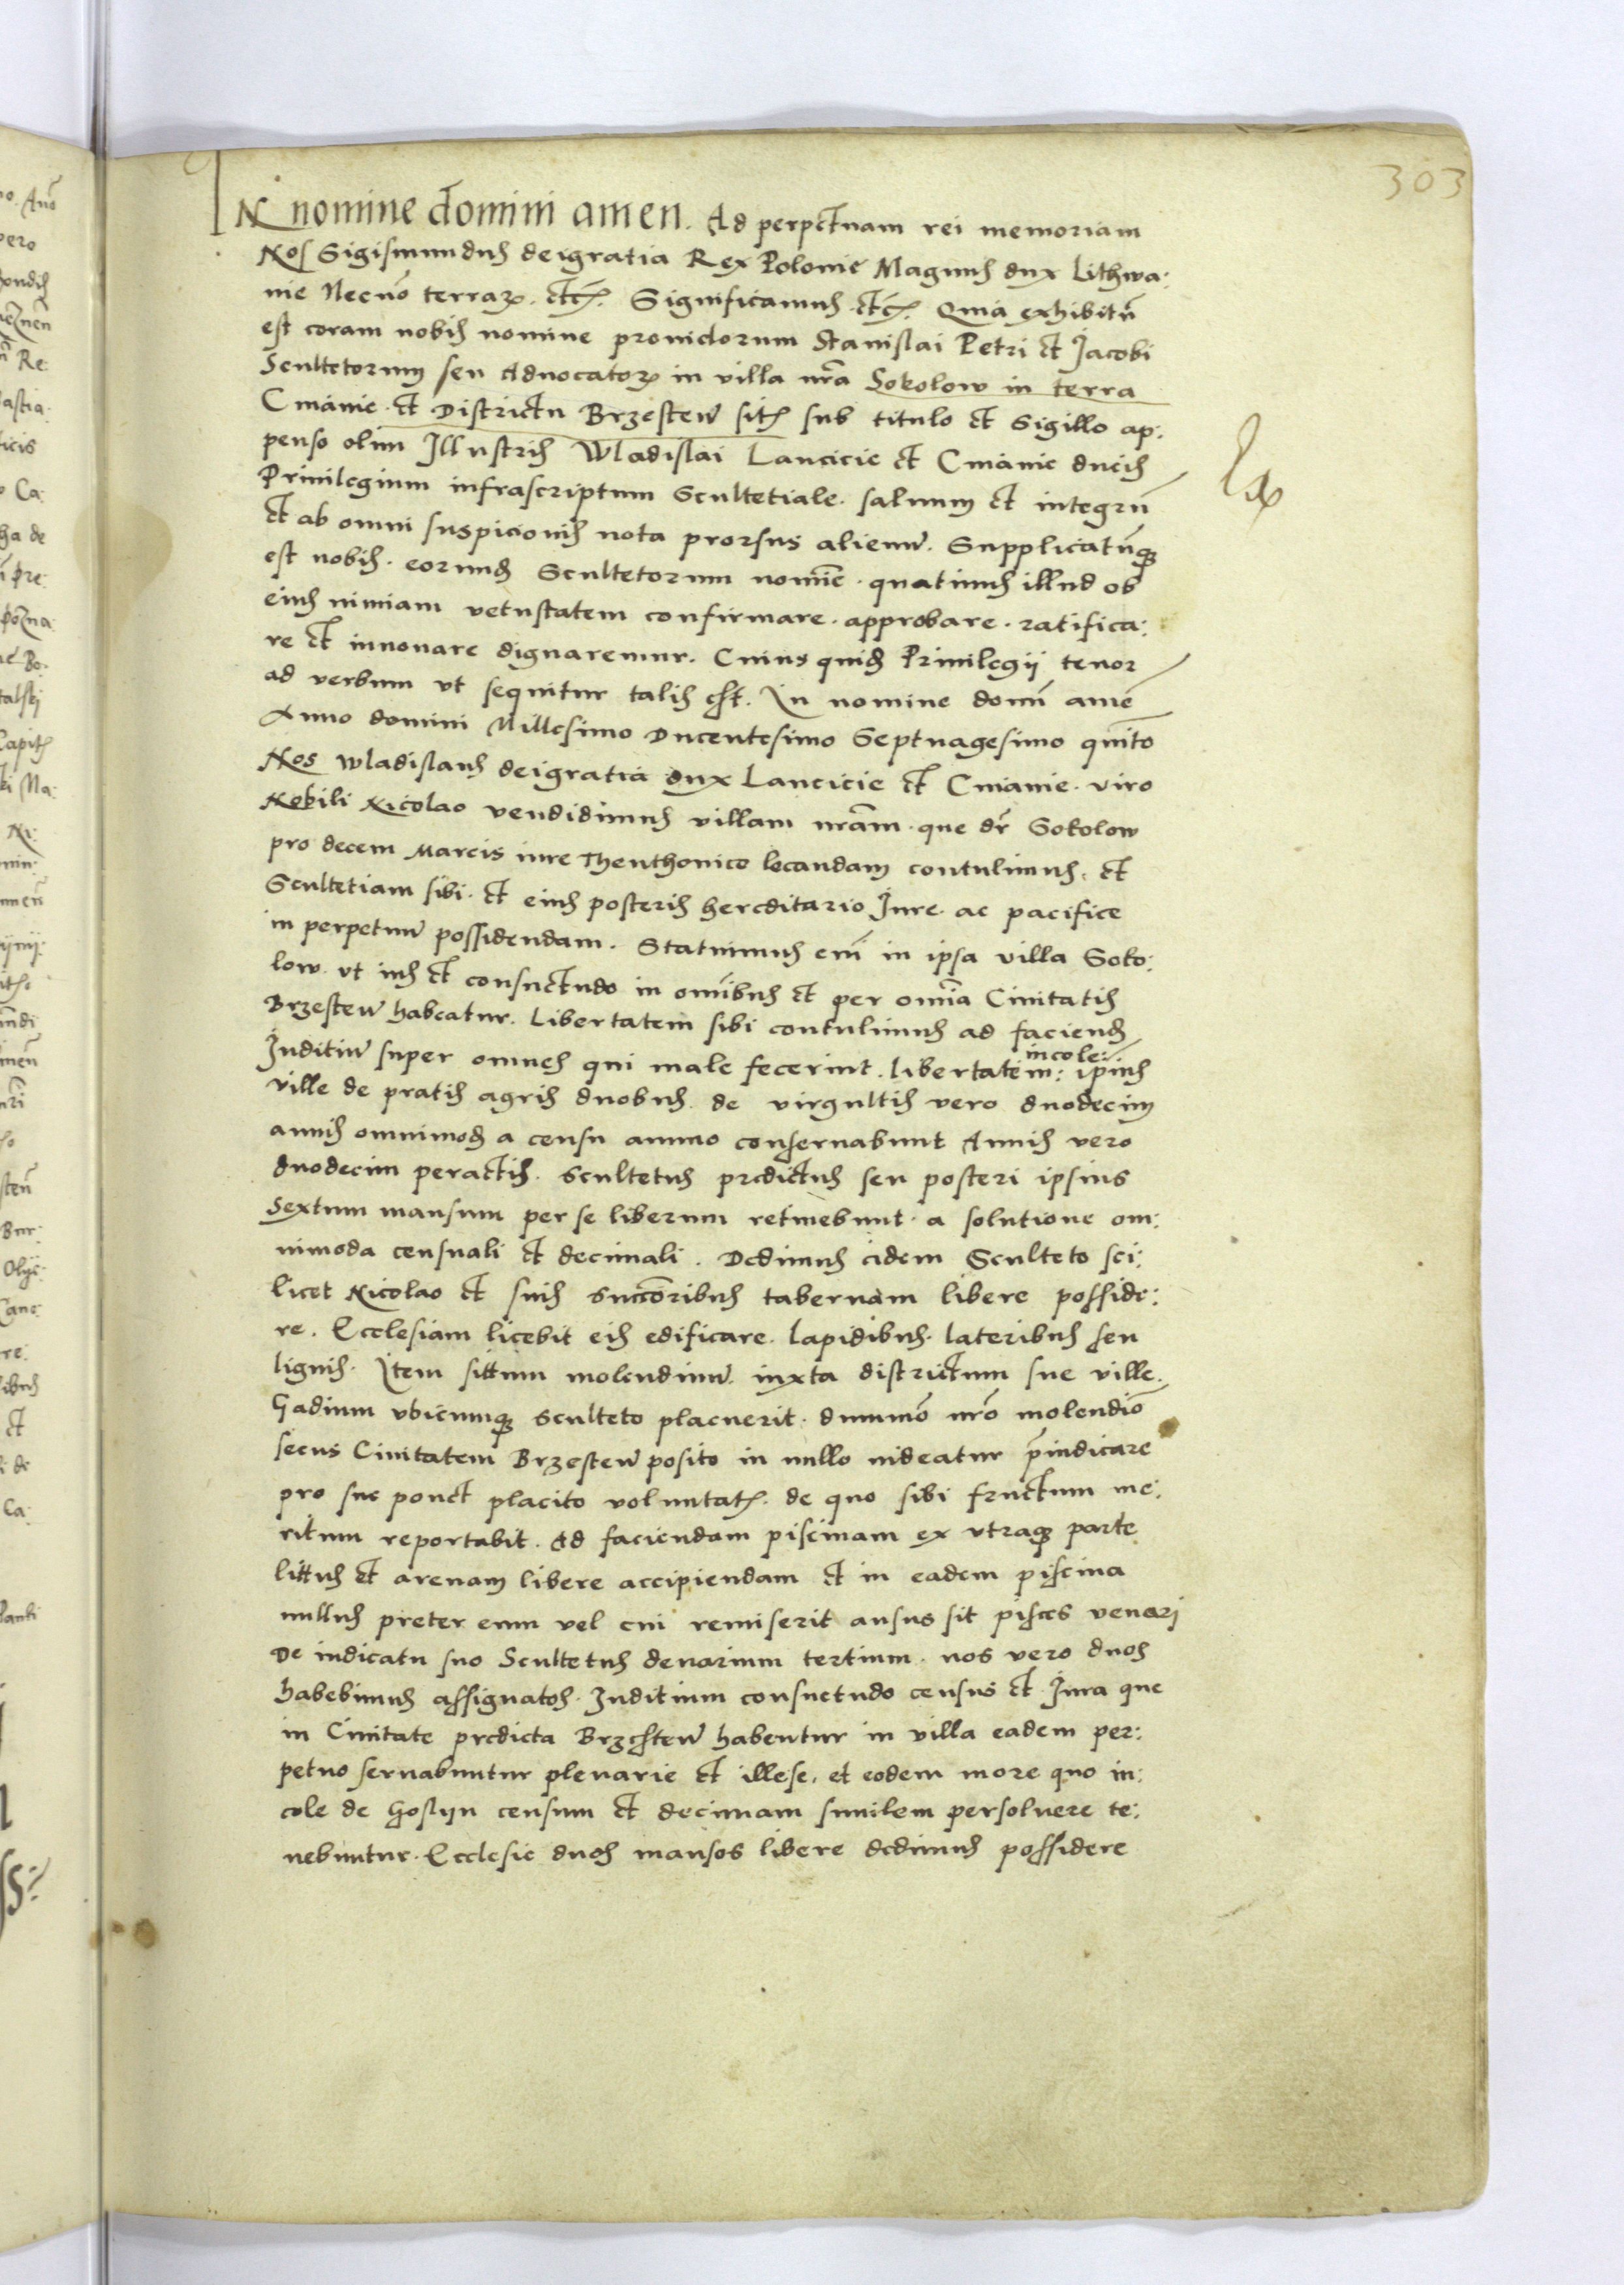 303
IN nomine domini amen. Ad perpetuam rei memoriam
Nos Sigismundus dei gratia Rex Polonie Magnus dux Lithwa:
nie Necnō terrarꝝ. etcꝭ. Significamus etcꝭ. Quia exhibitū
est coram nobis nomine prouidorum Stanislai Petri et Jacobi
Scultetorum seu Aduocatorꝝ in villa nrā Sokolow in terra
Cuiauie et Districtu Brzesteń sitꝭ sub titulo et Sigillo ap:
penso olim Illustris Wladislai Lancicie et Cuiauie ducis
Priuilegium infrascriptum Scultetiale. saluum et integrū
et ab omni suspicionis nota prorsus alienū. Supplicatūqꝫ
est nobis. eorundꝫ Scultetorum nomīe. quatinus illud ob
eius nimiam vetustatem confirmare. approbare. ratifica:
re et innouare dignaremur. Cuius quidꝫ Priuilegii tenor
ad verbum ut sequitur talis est. In nomine domī amē
Anno domini Millesimo Ducentesimo Septuagesimo quīto
Nos Wladislaus dei gratia dux Lancicie et Cuiauie. viro
Nobili Nicolao vendidimus villam nrām. que dr̄ Sokolow
pro decem Marcis iure Theuthonico locandam contulimus. et
Scultetiam sibi. et eius posteris hereditario Jure. ac pacifice
in perpetuū possidendam. Statuimus enī in ipsa villa Soko:
low. ut ius et consuetudo in omībus et per omīa Ciuitatis
Brzesteń habeatur. Libertatem sibi contulimus ad faciendꝫ
Juditiū super omnes qui male fecerint. libertatem: incole: ipīus
ville de pratis agris duobus. de virgultis vero duodecim
annis omnimodꝫ a censu ammo conseruabunt Annis vero
duodecim peractis. scultetus predictus seu posteri ipsius
Sextum mansum per se liberum retinebunt. a solutione om:
nimoda censuali et decimali. Dedimus eidem Sculteto sci:
licet Nicolao et suis succōribus tabernam libere posside:
re. Ecclesiam licebit eis edificare. lapidibus. lateribus seu
lignis. Item sittum molendinū. iuxta districtum sue ville.
Gadium vbicumqꝫ sculteto placuerit. dummō nrō molendīo
secus Ciuitatem Brzesteń posito in nullo uideatur p̄iudicare
pro sue ponet placito voluntatꝭ. de quo sibi fructum me:
ritum reportabit. Ad faciendam piscinam ex vtraqꝫ parte
littus et arenam libere accipiendam et in eadem piscina
nullus preter eum vel cui remiserit ausus sit pisces venari
De iudicatu suo Scultetus denarium tertium. nos vero duos
habebimus assignatos. Juditium consuetudo census et Jura que
in Ciuitate predicta Brzesteń habentur in villa eadem per:
petuo seruabuntur plenarie et illese. et eodem more quo in:
cole de Gostyn censum et decimam similem persoluere te:
nebuntur. Ecclesie duos mansos libere dedimus possidere